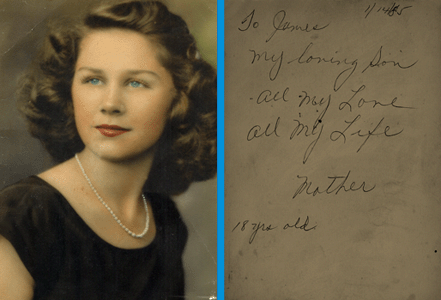 1/14/85
To James
My loving Son
All My Love
All My Life
Mother
18 yrs old